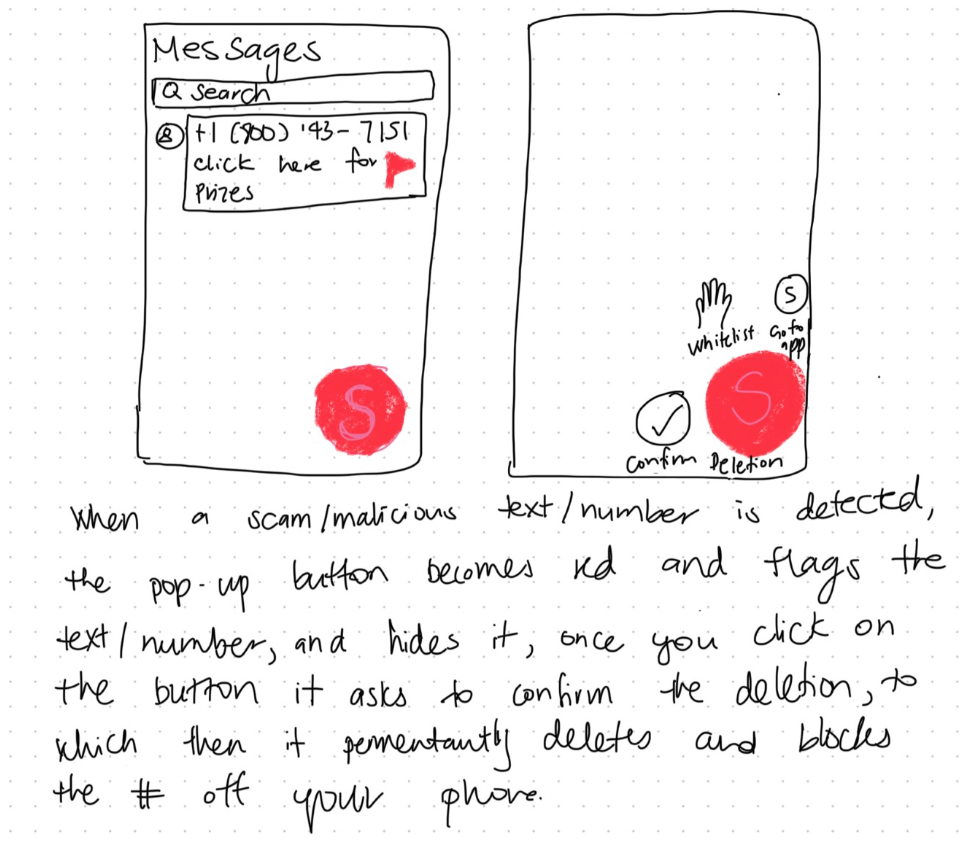 Messages
Search
+1 (900) 143-7151
click here for
prizes
S
S
Whitelist Go to
app
S
Confirm Deletion
when a scam/malicious text/number is detected,
the pop-up button becomes red and flags the
text/number, and hides it, once you click on
the button it asks to confirm the deletion, to
which then it permentantly deletes and blocks
the # off your phone.